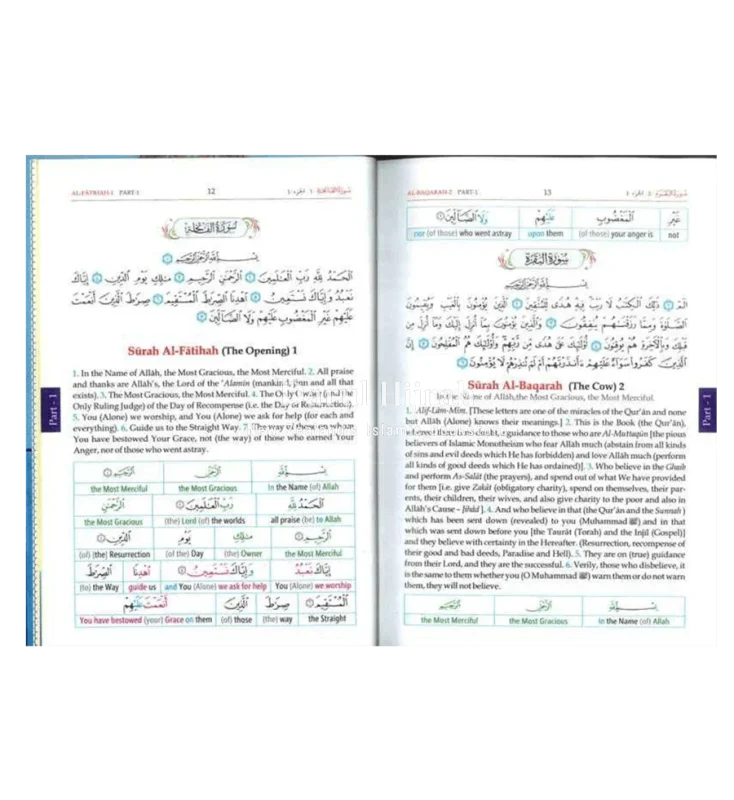 AL-FÂTIHAH-1 PART-1 12 سورة الفاتحة ١ الجزء ١
سُورَةُ الْفَاتِحَةِ
بِسْمِ اللَّهِ الرَّحْمَٰنِ الرَّحِيمِ ①
الْحَمْدُ لِلَّهِ رَبِّ الْعَٰلَمِينَ ② الرَّحْمَٰنِ الرَّحِيمِ ③ مَٰلِكِ يَوْمِ الدِّينِ ④ إِيَّاكَ
نَعْبُدُ وَإِيَّاكَ نَسْتَعِينُ ⑤ اهْدِنَا الصِّرَٰطَ الْمُسْتَقِيمَ ⑥ صِرَٰطَ الَّذِينَ أَنْعَمْتَ
عَلَيْهِمْ غَيْرِ الْمَغْضُوبِ عَلَيْهِمْ وَلَا الضَّآلِّينَ ⑦
Sûrah Al-Fâtihah (The Opening) 1
1. In the Name of Allâh, the Most Gracious, the Most Merciful. 2. All praise
and thanks are Allâh's, the Lord of the 'Alamîn (mankind, jinn and all that
exists). 3. The Most Gracious, the Most Merciful. 4. The Only Owner (and the
Only Ruling Judge) of the Day of Recompense (i.e. the Day of Resurrection).
5. You (Alone) we worship, and You (Alone) we ask for help (for each and
everything). 6. Guide us to the Straight Way. 7. The way of those on whom
You have bestowed Your Grace, not (the way) of those who earned Your
Anger, nor of those who went astray.
بِسْمِ اللَّهِ الرَّحْمَٰنِ الرَّحِيمِ ①
in the Name (of) Allah the Most Gracious the Most Merciful
الْحَمْدُ لِلَّهِ رَبِّ الْعَٰلَمِينَ ② الرَّحْمَٰنِ
all praise (be) to Allah (the) Lord (of) the worlds the Most Gracious
الرَّحِيمِ ③ مَٰلِكِ يَوْمِ الدِّينِ ④
the Most Merciful (the) Owner (of the) Day (of) (the) Resurrection
إِيَّاكَ نَعْبُدُ وَإِيَّاكَ نَسْتَعِينُ ⑤ اهْدِنَا الصِّرَٰطَ
You (Alone) we worship and You (Alone) we ask for help guide us (to) the Way
الْمُسْتَقِيمَ ⑥ صِرَٰطَ الَّذِينَ أَنْعَمْتَ عَلَيْهِمْ
the Straight (the) way (of) those You have bestowed (your) Grace on them
Part - 1
AL-BAQARAH-2 PART-1 13 سورة البقرة ٢ الجزء ١
غَيْرِ الْمَغْضُوبِ عَلَيْهِمْ وَلَا الضَّآلِّينَ ⑦
not (of those) your anger is upon them nor (of those) who went astray
سُورَةُ الْبَقَرَةِ
بِسْمِ اللَّهِ الرَّحْمَٰنِ الرَّحِيمِ
الٓمٓ ① ذَٰلِكَ الْكِتَٰبُ لَا رَيْبَ فِيهِ هُدًى لِّلْمُتَّقِينَ ② الَّذِينَ يُؤْمِنُونَ بِالْغَيْبِ وَيُقِيمُونَ
الصَّلَوٰةَ وَمِمَّا رَزَقْنَٰهُمْ يُنفِقُونَ ③ وَالَّذِينَ يُؤْمِنُونَ بِمَآ أُنزِلَ إِلَيْكَ وَمَآ أُنزِلَ مِن
قَبْلِكَ وَبِالْءَاخِرَةِ هُمْ يُوقِنُونَ ④ أُو۟لَٰٓئِكَ عَلَىٰ هُدًى مِّن رَّبِّهِمْ وَأُو۟لَٰٓئِكَ هُمُ الْمُفْلِحُونَ ⑤ إِنَّ
الَّذِينَ كَفَرُوا سَوَآءٌ عَلَيْهِمْ ءَأَنذَرْتَهُمْ أَمْ لَمْ تُنذِرْهُمْ لَا يُؤْمِنُونَ ⑥
Sûrah Al-Baqarah (The Cow) 2
In the Name of Allâh, the Most Gracious, the Most Merciful.
1. Alif-Lâm-Mîm. [These letters are one of the miracles of the Qur'ân and none
but Allâh (Alone) knows their meanings.] 2. This is the Book (the Qur'ân),
whereof there is no doubt, a guidance to those who are Al-Muttaqûn [the pious
believers of Islamic Monotheism who fear Allâh much (abstain from all kinds
of sins and evil deeds which He has forbidden) and love Allâh much (perform
all kinds of good deeds which He has ordained)]. 3. Who believe in the Ghaib
and perform As-Salât (the prayers), and spend out of what We have provided
for them [i.e. give Zakât (obligatory charity), spend on themselves, their par-
ents, their children, their wives, and also give charity to the poor and also in
Allâh's Cause – Jihâd]. 4. And who believe in that (the Qur'ân and the Sunnah)
which has been sent down (revealed) to you (Muhammad ﷺ) and in that
which was sent down before you [the Taurât (Torah) and the Injîl (Gospel)]
and they believe with certainty in the Hereafter. (Resurrection, recompense of
their good and bad deeds, Paradise and Hell). 5. They are on (true) guidance
from their Lord, and they are the successful. 6. Verily, those who disbelieve, it
is the same to them whether you (O Muhammad ﷺ) warn them or do not warn
them, they will not believe.
بِسْمِ اللَّهِ الرَّحْمَٰنِ الرَّحِيمِ
in the Name (of) Allah the Most Gracious the Most Merciful
Part - 1